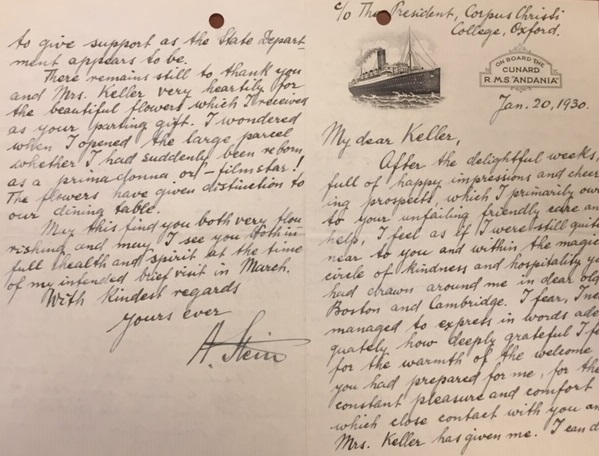 to give support as the State Depart-
ment appears to be.
There remains still to thank you
and Mrs. Keller very heartily for
the beautiful flowers which I received
as your parting gift. I wondered
when I opened the large parcel
whether I had suddenly been reborn
as a prima donna or - filmstar!
The flowers have given distinction to
our dining table.
May this find you both very flou-
rishing and may I see you both in
full health and spirit at the time
of my intended brief visit in March.
With kindest regards
Yours ever
A. Stein
c/o The President, Corpus Christi
College, Oxford.
ON BOARD THE
CUNARD
R.M.S. "ANDANIA"
Jan. 20, 1930.
My dear Keller,
After the delightful weeks,
full of happy impressions and cheer-
ing prospects, which I primarily owe
to your unfailing friendly care and
help, I feel as if I were still quite
near to you and within the magic
circle of kindness and hospitality you
had drawn around me in dear old
Boston and Cambridge. I fear, I
managed to express in words ade-
quately how deeply grateful I
for the warmth of the welcome
you had prepared for me, for the
constant pleasure and comfort
which close contact with you and
Mrs. Keller has given me. I can